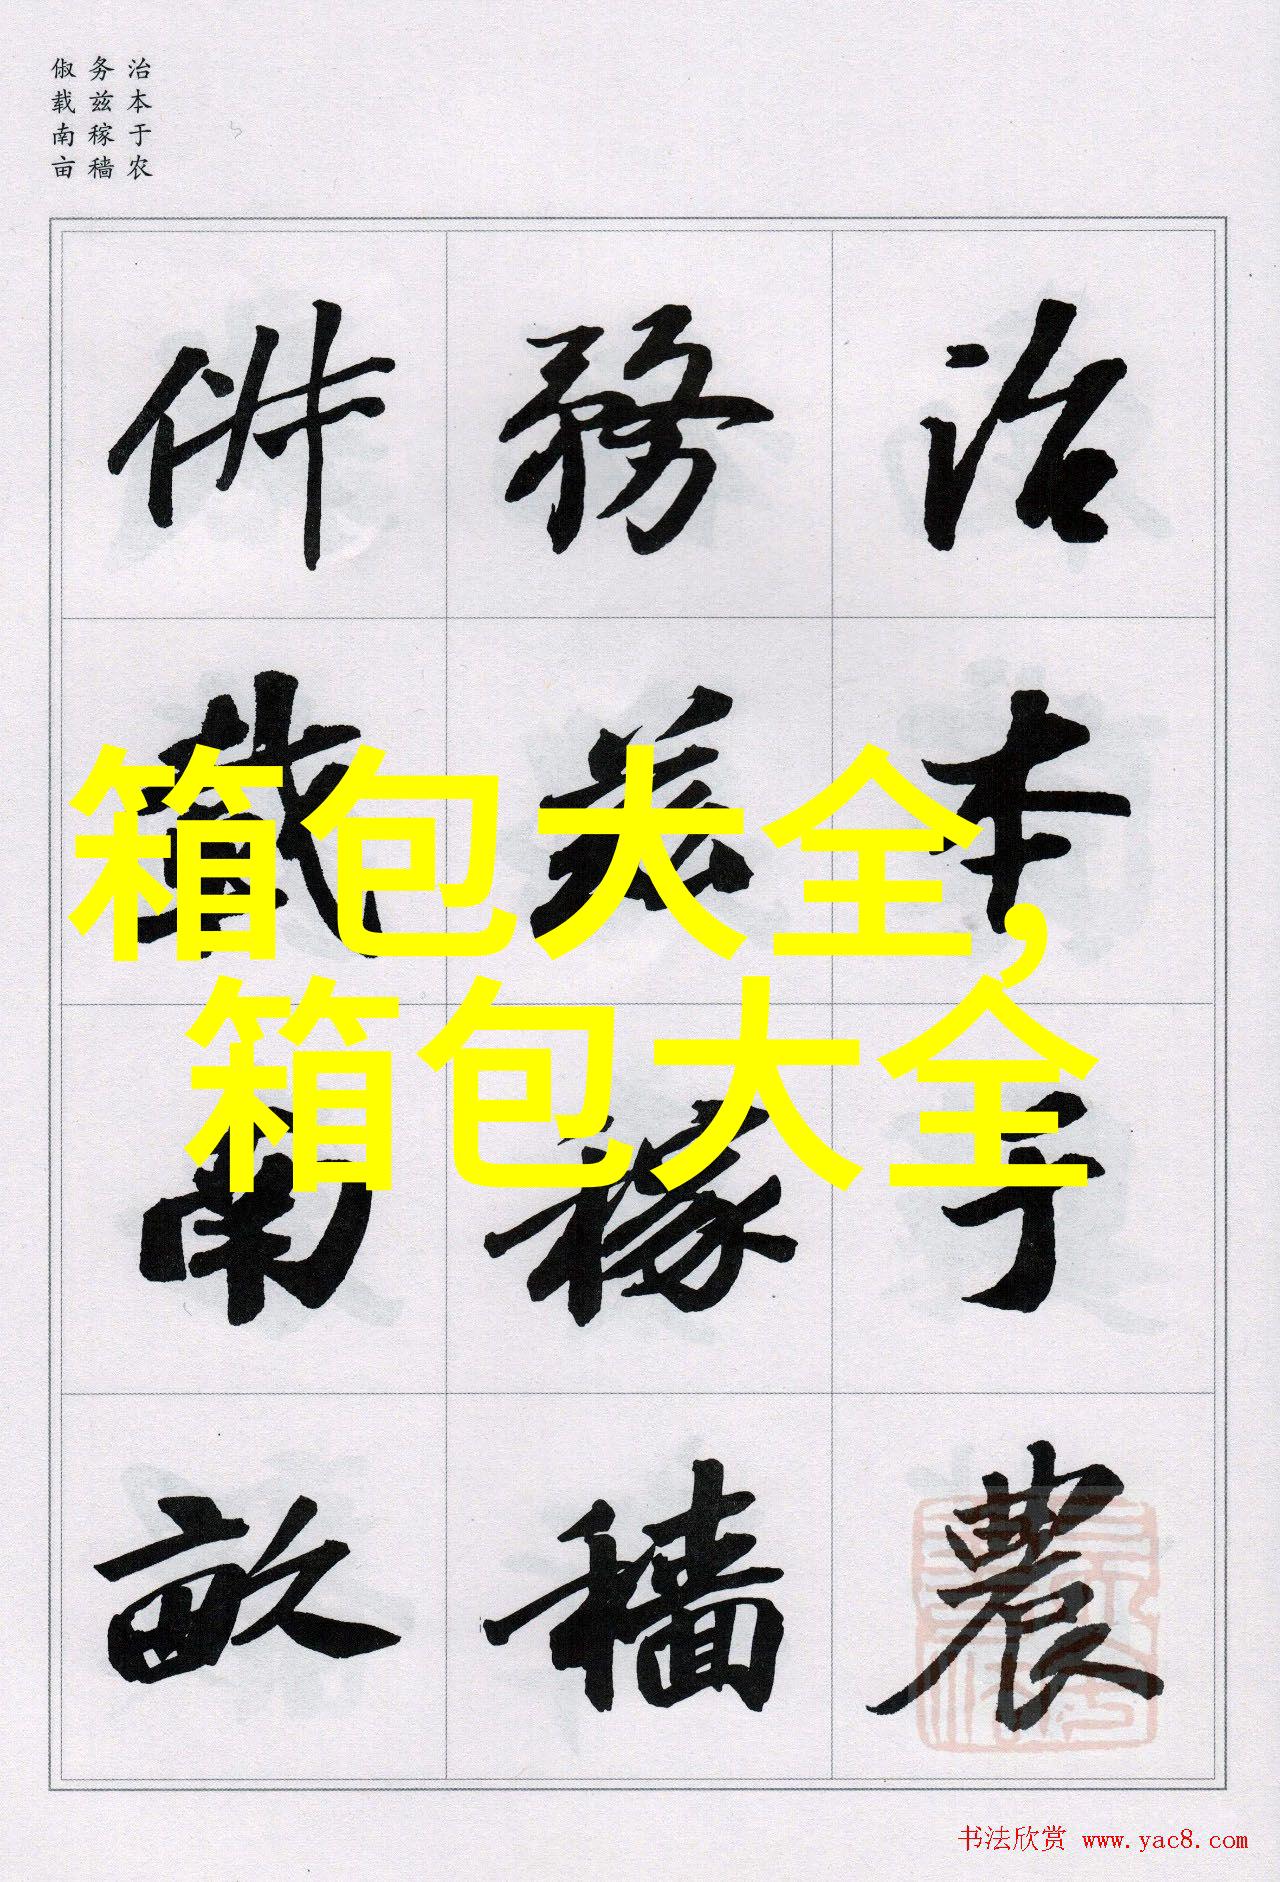 治本于农
务兹稼穑
俶载南亩
治本于農
務茲稼穡
俶載南畝
箱包大全,
箱包大全
书法欣赏 www.yac8.com